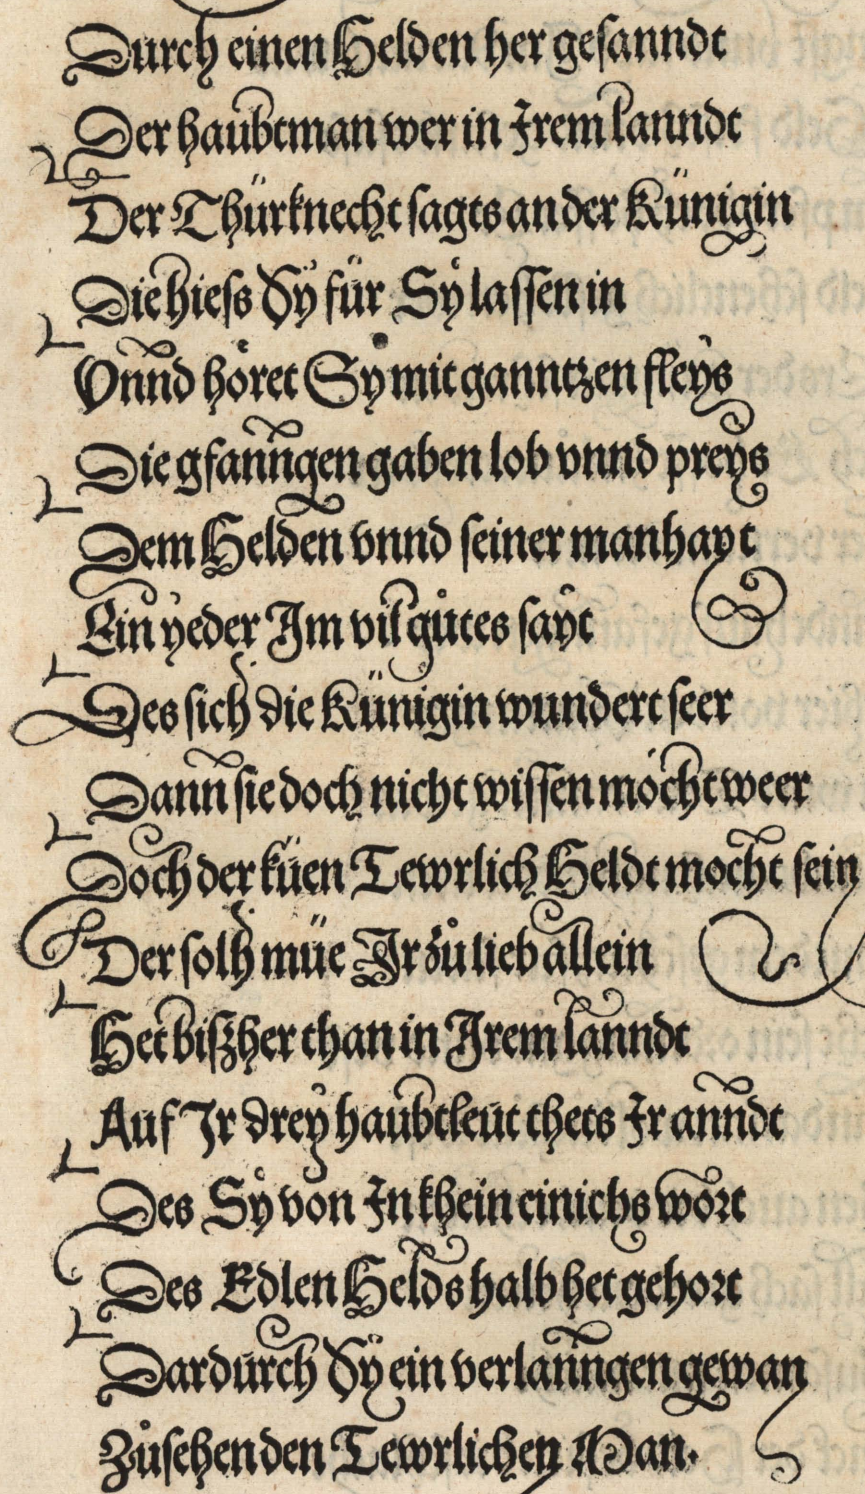 Durch einen Helden her gesanndt
Der haubtman wer in Irem lanndt
Der Thürknecht sagts an der Künigin
Die hiess Sÿ für Sy lassen in
Vnnd höret Sy mit ganntzen fleys
Die gfanngen gaben lob vnnd preys
Dem Helden vnnd seiner manhayt
Ein yeder Im vil gůtes sayt
Des sich die Künigin wundert seer
Dann sie doch nicht wissen möcht weer
Doch der küen Tewrlich Heldt mocht sein
Der solh müe Ir zů lieb allein
Het biszher than in Irem lanndt
Auf Ir drey haubtleut thets Ir anndt
Des Sy von In khein einichs wort
Des Edlen Helds halb het gehort
Dardurch Sÿ ein verlanngen gewan
Zůsehen den Tewrlichen Man.